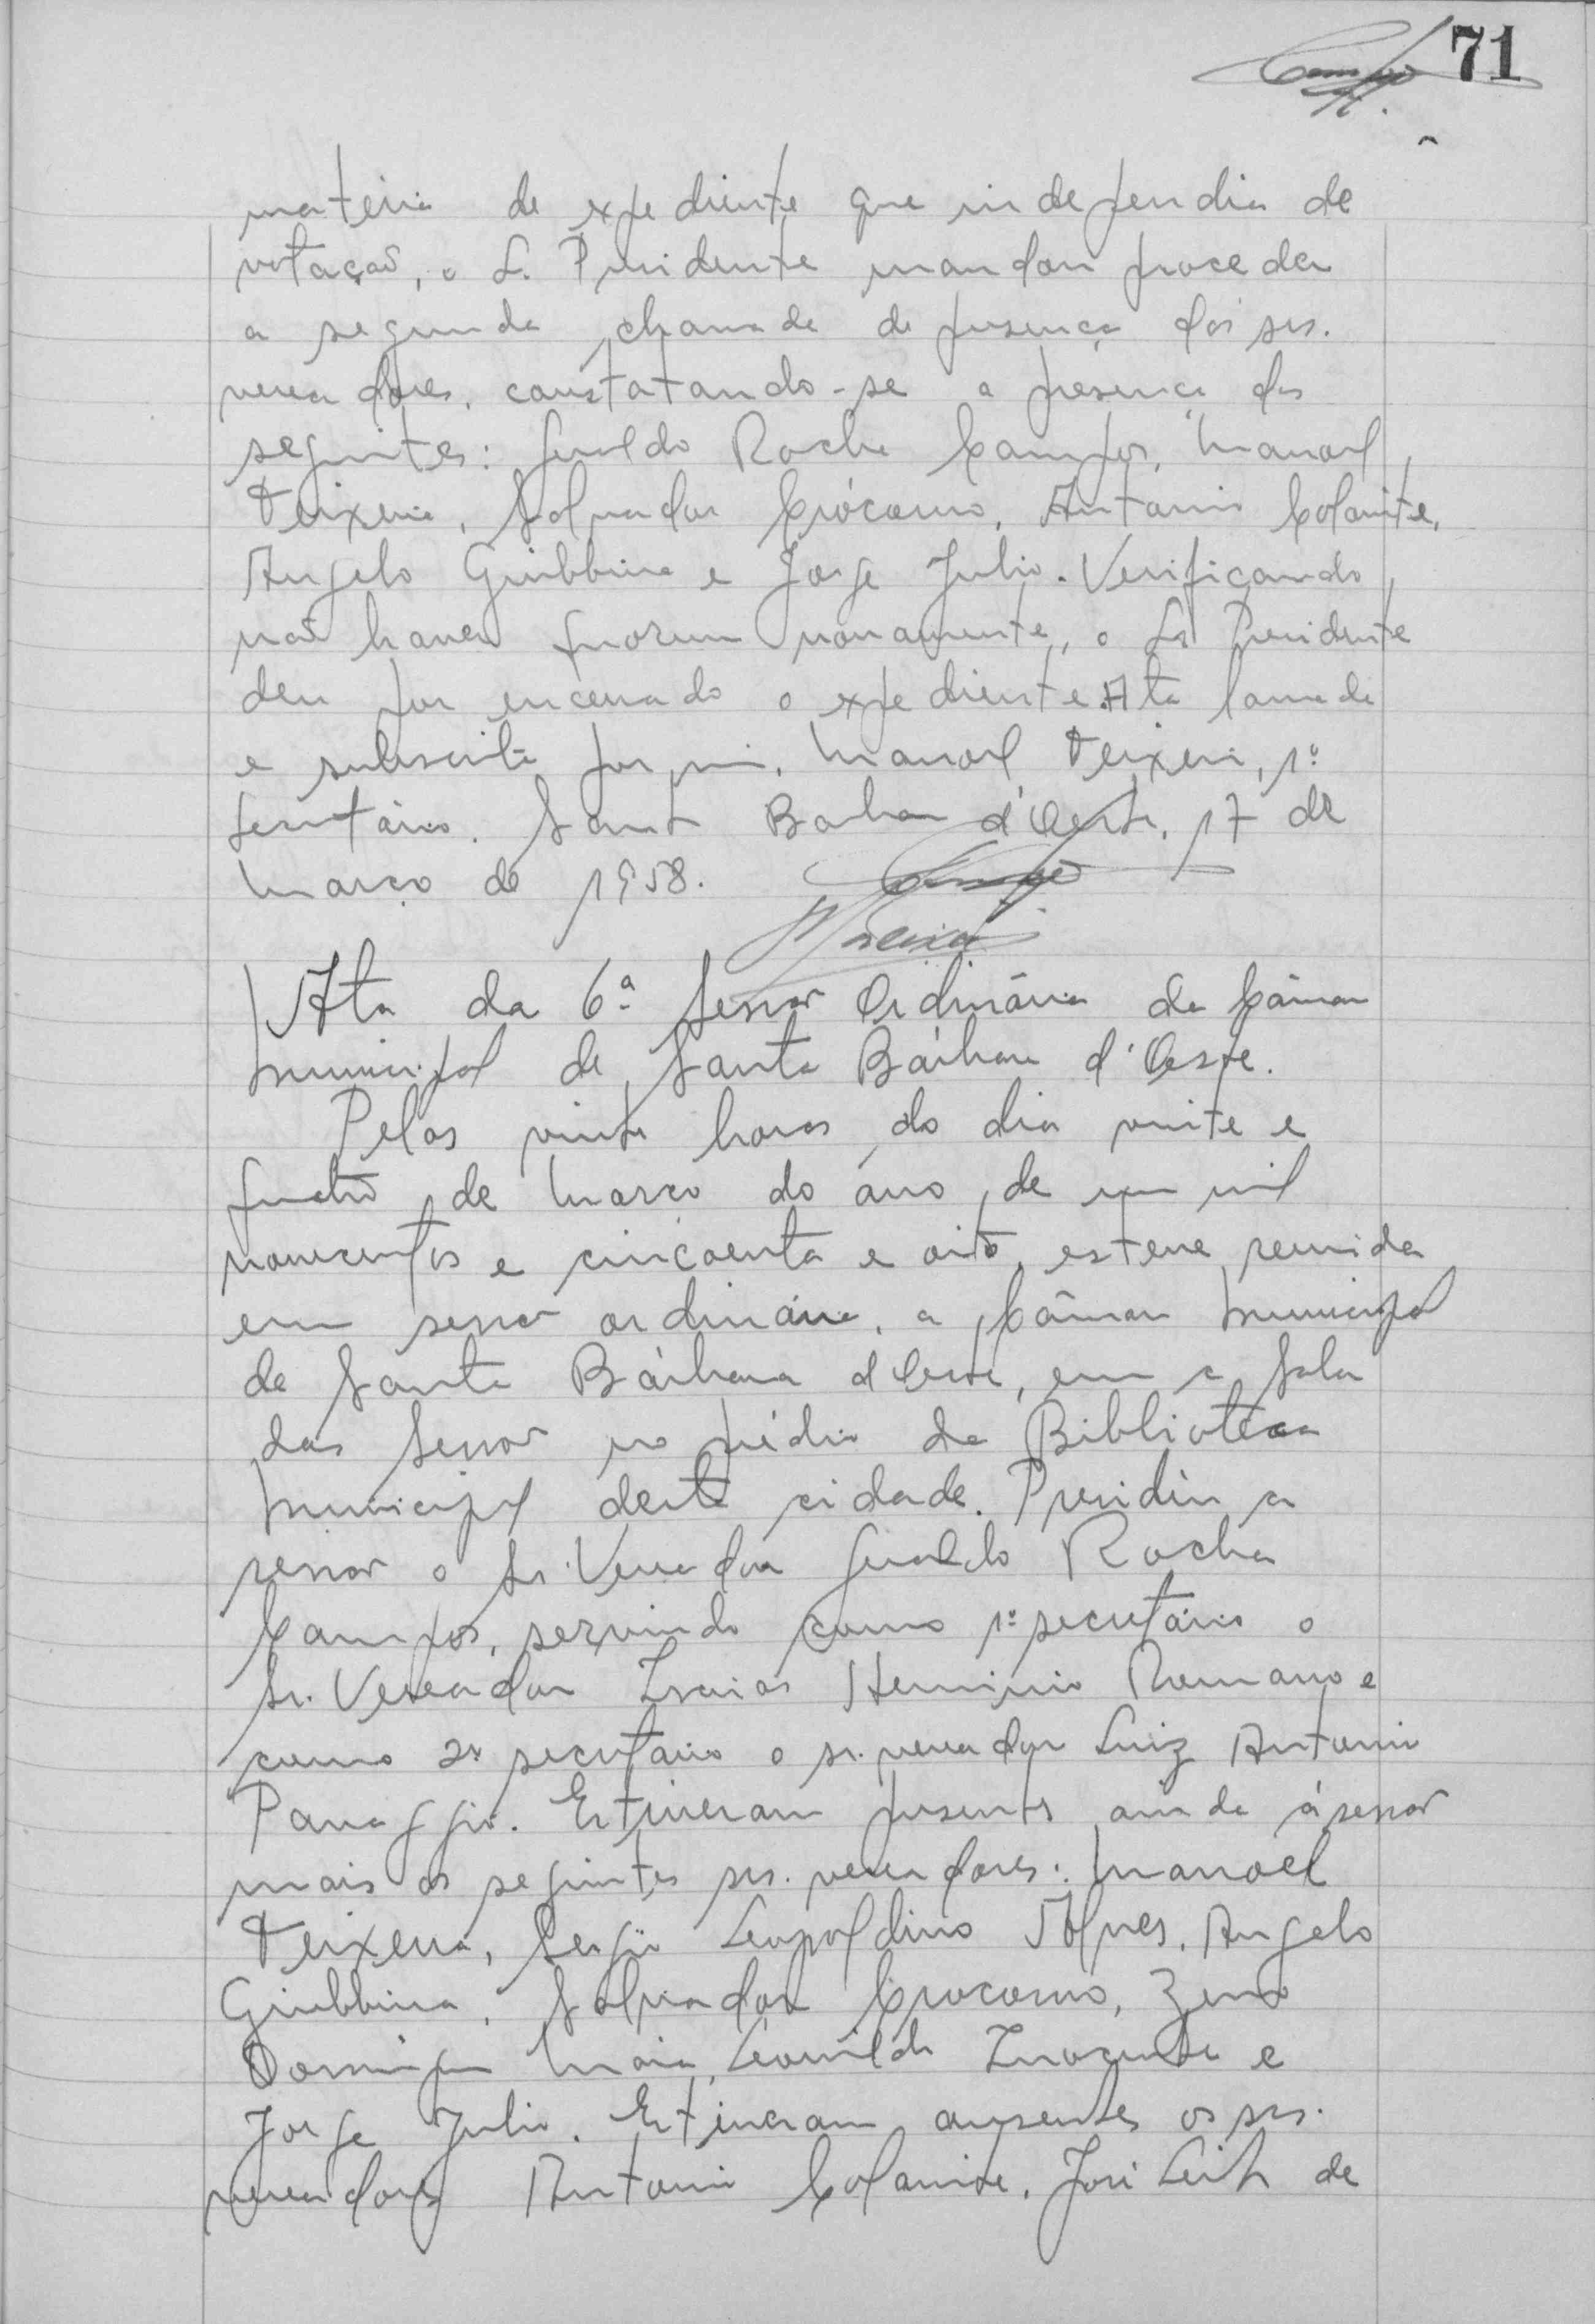 71
matéria de expediente que independia de
votação, o S. Presidente mandou proceder
a segunda chamada de presença dos srs.
vereadores, constatando-se a presença dos
seguintes: Geraldo Rocha Campos, Manoel
Teixeira, Salvador Crócomo, Antonio Colanite,
Angelo Giubbina e Jorge Julio. Verificando
não haver quorum novamente, o Sr Presidente
deu por encerrado o expediente. Ata lavrada
e subscrita por mim, Manoel Teixeira, 1º
secretário. Santa Barbara d'Oeste, 17 de
Março de 1958.
Ata da 6ª Sessão Ordinária da Câmara
Municipal de Santa Bárbara d'Oeste.
Pelas vinte horas do dia vinte e
quatro de Março do ano de um mil
novecentos e cincoenta e oito, esteve reunida
em sessão ordinária, a Câmara Municipal
de Santa Bárbara d'Oeste, em a Sala
das Sessões no prédio da Biblioteca
Municipal desta cidade. Presidiu a
sessão o Sr. Vereador Geraldo Rocha
Campos, servindo como 1º secretário o
Sr. Vereador Isaias Herminio Romano e
como 2º secretário o sr. vereador Luiz Antonio
Panaggio. Estiveram presentes ainda á sessão
mais os seguintes srs. vereadores: Manoel
Teixeira, Sergio Leopoldino Alves, Angelo
Giubbina, Salvador Crocomo, Zeno
Domingos Maia, Leonildo Inocente e
Jorge Julio. Estiveram ausentes os srs.
vereadores Antonio Colanite, José Leite de